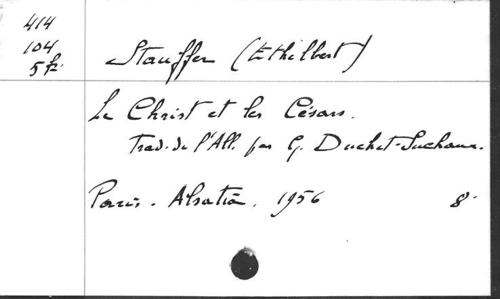 414
104
5 fz.
Stauffer (Ethilbert)
Le Christ et les Césars.
Trad. de l'All. par G. Duchet-Suchaux.
Paris. Alsatia. 1956 8°